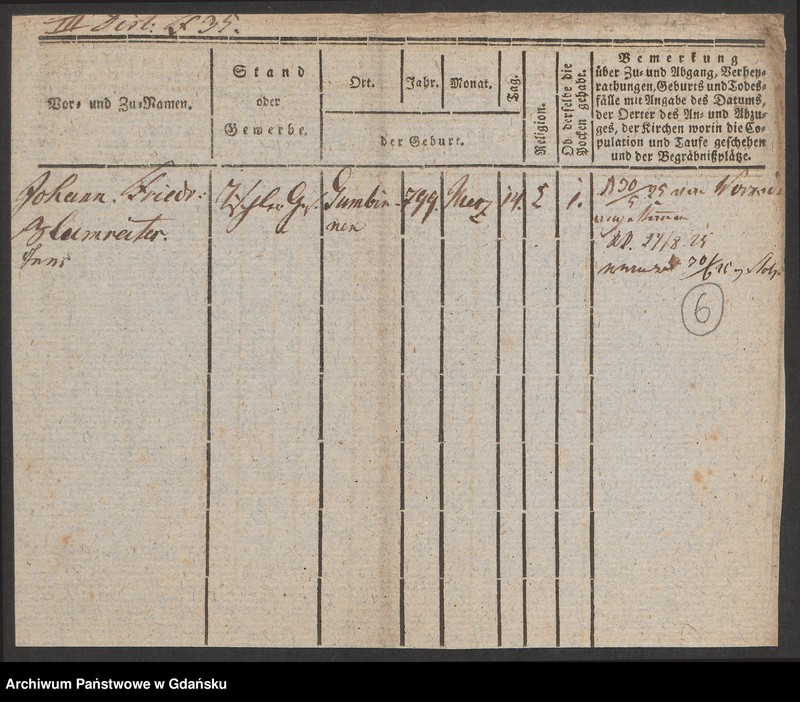 III Dist: № 35.
Vor= und Zu=Namen.
Stand
oder
Gewerbe.
Ort.
Jahr.
Monat.
Tag.
der Geburt.
Religion.
Ob derselbe die
Pocken gehabt.
Bemerkung
über Zu= und Abgang, Verhey=
rathungen, Geburts und Todes=
fälle mit Angabe des Datums,
der Oerter des An= und Abzu=
ges, der Kirchen worin die Co=
pulation und Taufe geschehen
und der Begräbnißplätze.
Johann. Friedr:
Tischler Ges.
Gumbin=
nen
799.
Merz
14.
L
1.
30/5 25
27/8 25
6
Archiwum Państwowe w Gdańsku